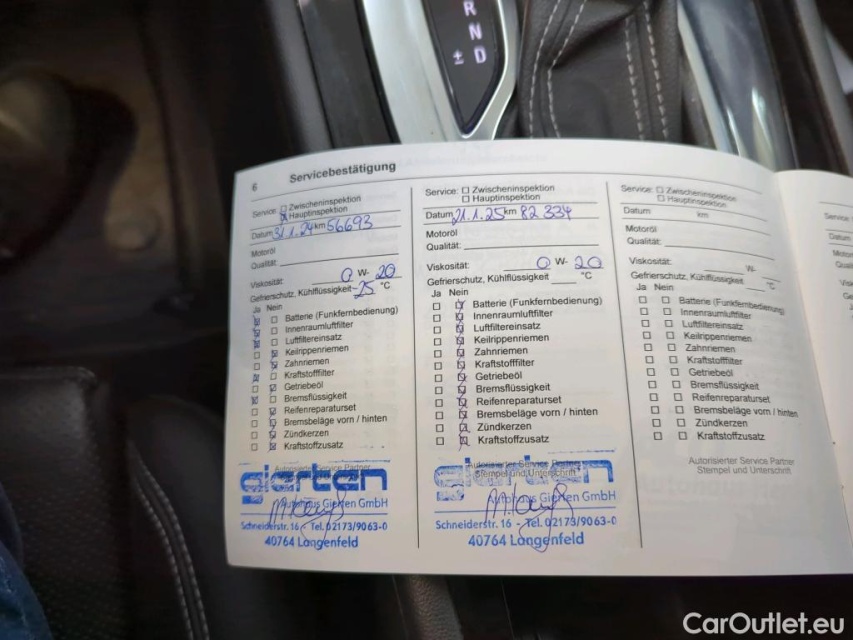 R
N
± D
6 Servicebestätigung
Service: Zwischeninspektion
Hauptinspektion
Datum 31.1.24 km 56693
Motoröl
Qualität:
Viskosität: 0 W- 20
Gefrierschutz, Kühlflüssigkeit -25 °C
Ja Nein
Batterie (Funkfernbedienung)
Innenraumluftfilter
Luftfiltereinsatz
Keilrippenriemen
Zahnriemen
Kraftstofffilter
Getriebeöl
Bremsflüssigkeit
Reifenreparaturset
Bremsbeläge vorn / hinten
Zündkerzen
Kraftstoffzusatz
Autorisierter Service Partner
gierten
Autohaus Gierten GmbH
Schneiderstr. 16 - Tel. 02173/9063-0
40764 Langenfeld
Service: Zwischeninspektion
Hauptinspektion
Datum 21.1.25 km 82 334
Motoröl
Qualität:
Viskosität: 0 W- 20
Gefrierschutz, Kühlflüssigkeit °C
Ja Nein
Batterie (Funkfernbedienung)
Innenraumluftfilter
Luftfiltereinsatz
Keilrippenriemen
Zahnriemen
Kraftstofffilter
Getriebeöl
Bremsflüssigkeit
Reifenreparaturset
Bremsbeläge vorn / hinten
Zündkerzen
Kraftstoffzusatz
Autorisierter Service Partner
Stempel und Unterschrift
gierten
Autohaus Gierten GmbH
Schneiderstr. 16 - Tel. 02173/9063-0
40764 Langenfeld
Service: Zwischeninspektion
Hauptinspektion
Datum km
Motoröl
Qualität:
Viskosität: W-
Gefrierschutz, Kühlflüssigkeit °C
Ja Nein
Batterie (Funkfernbedienung)
Innenraumluftfilter
Luftfiltereinsatz
Keilrippenriemen
Zahnriemen
Kraftstofffilter
Getriebeöl
Bremsflüssigkeit
Reifenreparaturset
Bremsbeläge vorn / hinten
Zündkerzen
Kraftstoffzusatz
Autorisierter Service Partner
Stempel und Unterschrift
CarOutlet.eu